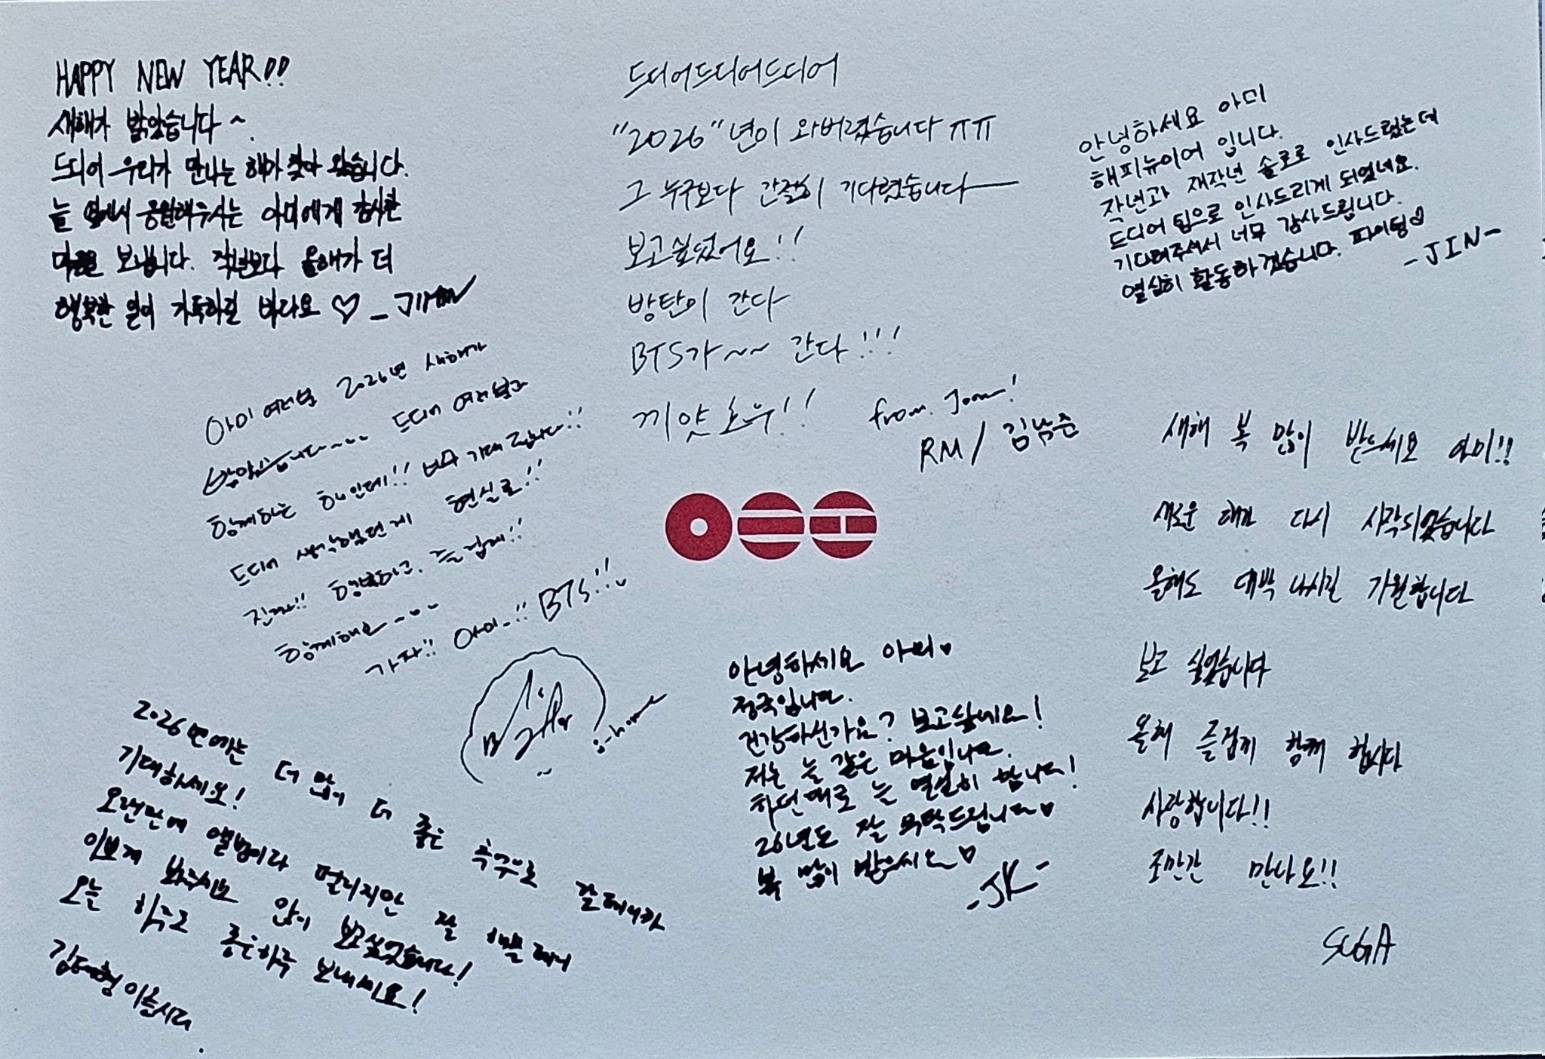 HAPPY NEW YEAR!!
새해가 밝았습니다~.
드디어 우리가 만나는 해가 찾아 왔습니다.
늘 옆에서 응원해주시는 아미에게 감사한
마음을 보냅니다. 작년보다 올해가 더
행복한 일이 가득하길 바라요 ♡ - JIMIN
드디어드디어드디어
"2026"년이 와버렸습니다 ㅠㅠ
그 누구보다 간절히 기다렸습니다
보고싶었어요!!
방탄이 간다
BTS가~~ 간다!!!
끼얏호우!!
from. Joon!
RM / 김남준
안녕하세요 아미
해피뉴이어 입니다.
작년과 재작년 솔로로 인사드렸는데
드디어 팀으로 인사드리게 되었네요.
기다려주셔서 너무 감사드립니다.
열심히 활동하겠습니다. 파이팅♡
- JIN -
아미 여러분 2026년 새해가
밝았습니다~~ 드디어 여러분과
함께하는 해인데!! 너무 기대 됩니다!!
드디어 생각했던게 현실로!!
진짜!! 행복하고, 즐겁게!!
함께해요~..
가자!! 아미~!! BTS!!
j-hope
새해 복 많이 받으세요 아미!!
새로운 해가 다시 시작되었습니다
올해도 대박 나시길 기원합니다
보고 싶었습니다
올해 즐겁게 함께 합시다
사랑합니다!!
조만간 만나요!!
SUGA
안녕하세요 아미♥
정국입니다.
건강하신가요? 보고싶네요!
저는 늘 같은 마음입니다.
하던대로 늘 열심히 합니다!
26년도 잘 부탁드립니다♥
복 많이 받으시오♡
- JK -
2026년에는 더 많이 더 좋은 추억으로 갈테니까
기대하세요!
오랜만에 앨범이라 떨리지만 잘 해볼테니
이쁘게 봐주시고 많이 보고싶었습니다!
오늘 하루도 좋은하루 보내세요!
김태형 이올시다.